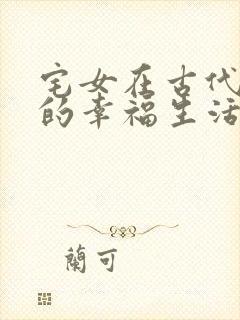 宅女在古代
的幸福生活
蘭可